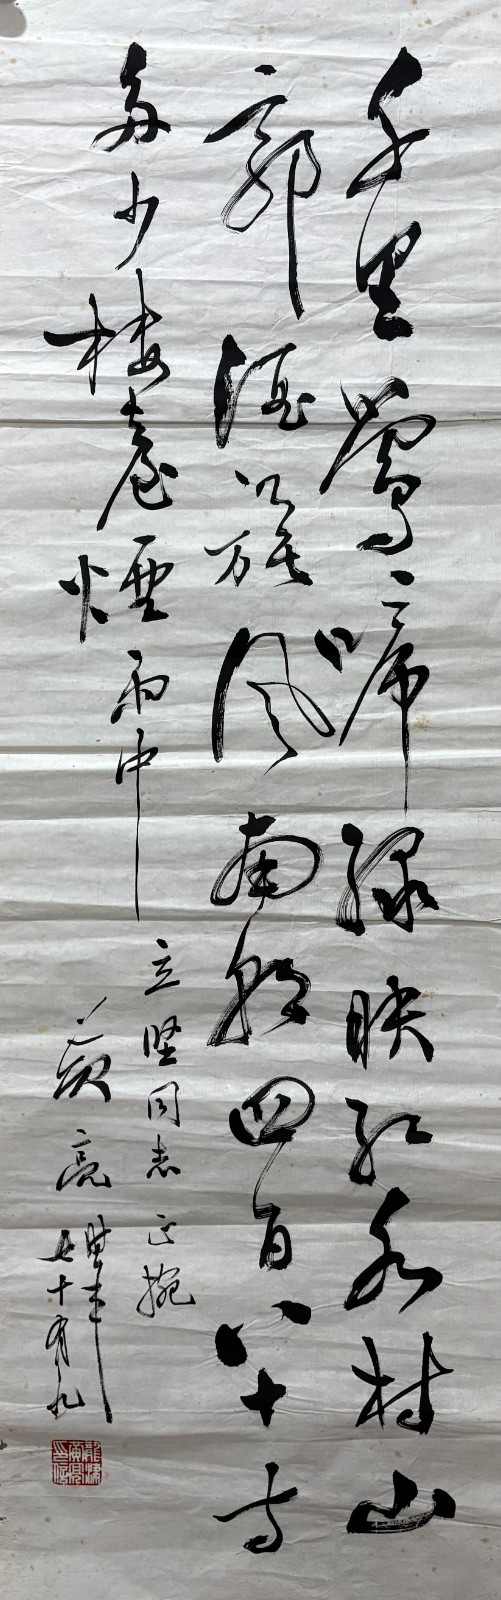 千里莺啼绿映红水村山
郭酒旗风南朝四百八十寺
多少楼台煙雨中
立坚同志正腕
黄亮
时年
七十有九